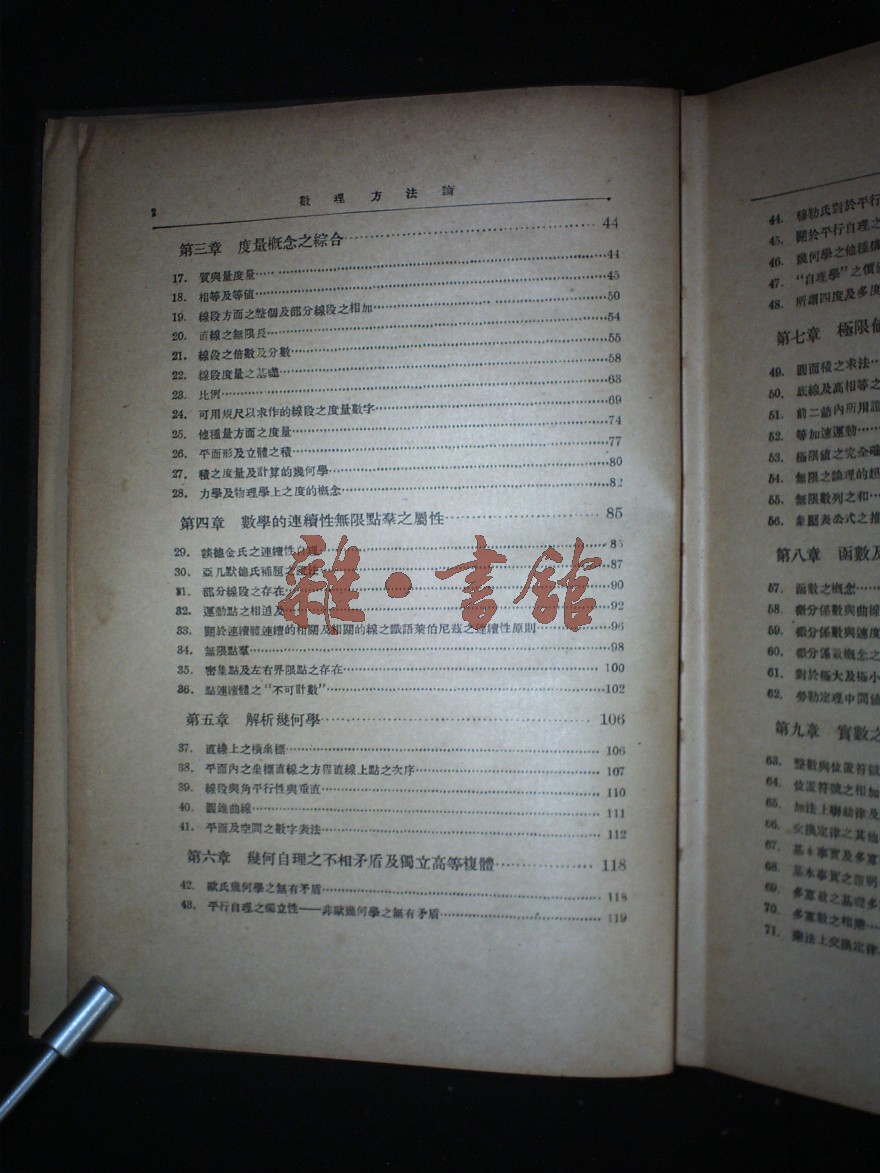 2 數理方法論
第三章 度量概念之綜合 44
17. 質與量度量 44
18. 相等及等値 45
19. 線段方面之整個及部分線段之相加 50
20. 直線之無限長 54
21. 線段之倍數及分數 55
22. 線段度量之基礎 58
23. 比例 63
24. 可用規尺以求作的線段之度量數字 69
25. 他種量方面之度量 74
26. 平面形及立體之積 77
27. 積之度量及計算的幾何學 80
28. 力學及物理學上之度的概念 82
第四章 數學的連續性無限點羣之屬性 85
29. 德金氏之連續性自理 85
30. 亞几默德氏補題之證法 87
31. 部分線段之存在 90
32. 運動點之相遇及 92
33. 關於連續體連續的相關及相關的線之 語萊伯尼茲之連續性原則 96
34. 無限點羣 98
35. 密集點及左右界限點之存在 100
36. 點連續體之“不可計數” 102
第五章 解析幾何學 106
37. 直線上之橫坐標 106
38. 平面內之坐標直線之方程直線上點之次序 107
39. 線段與角平行性與垂直 110
40. 圓錐曲線 111
41. 平面及空間之數字表法 112
第六章 幾何自理之不相矛盾及獨立高等複體 118
42. 歐氏幾何學之無有矛盾 118
43. 平行自理之獨立性——非歐幾何學之無有矛盾 119
雜·書館
44. 穆勒氏對於平行
45. 關於平行自理之
46. 幾何學之他種
47. “自理學”之價
48. 所謂四度及多度
第七章 極限值
49. 圓面積之求法
50. 底線及高相等之
51. 前二節內所用
52. 等加速運動
53. 極限值之完全
54. 無限之論理的
55. 無限數列之和
56. 表公式之推
第八章 函數及
57. 函數之概念
58. 微分係數與曲線
59. 微分係數與速度
60. 微分係數概念之
61. 對於極大及極小
62. 勞勒定理中間値
第九章 實數之
63. 整數與位置符號
64. 位置符號之相加
65. 加法上聯結律及
66. 交換定律之其他
67. 基本事實及多
68. 基本事實之證明
69. 多 數之基礎多
70. 多 數之相乘
71. 乘法上交換定律